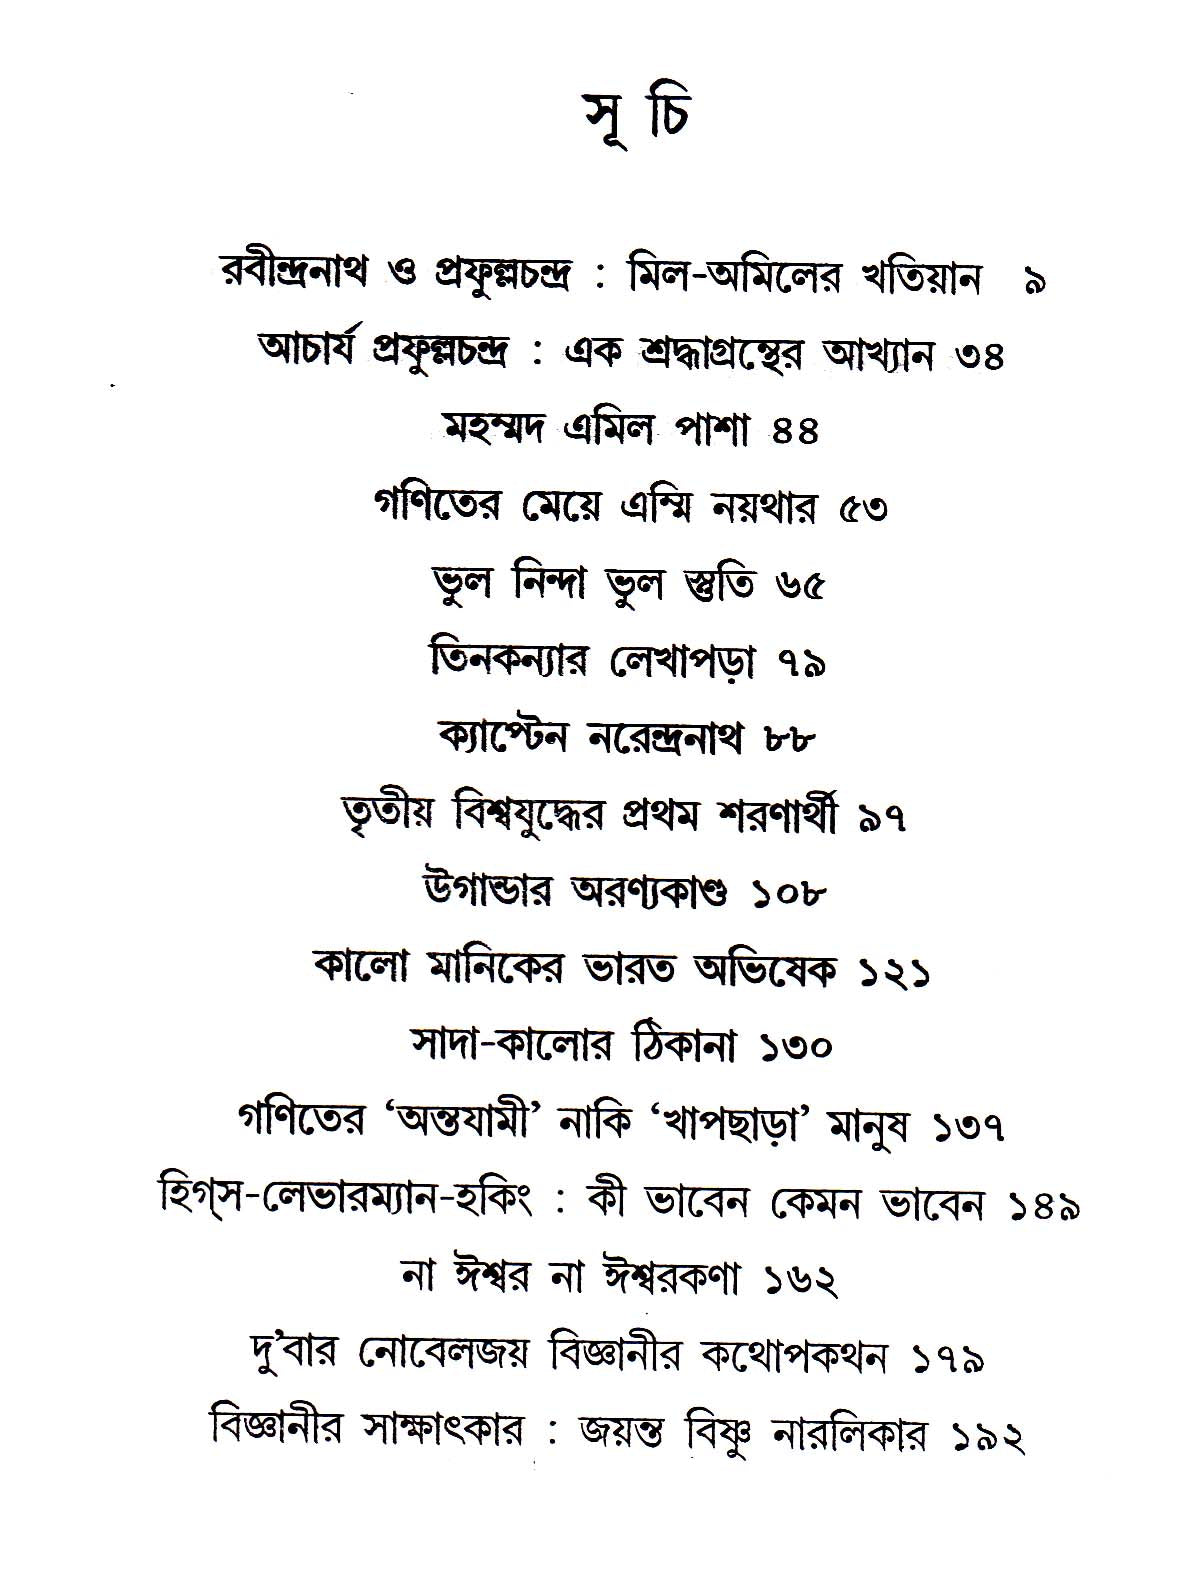 সূ চি
রবীন্দ্রনাথ ও প্রফুল্লচন্দ্র : মিল-অমিলের খতিয়ান ৯
আচার্য প্রফুল্লচন্দ্র : এক শ্রদ্ধাগ্রন্থের আখ্যান ৩৪
মহম্মদ এমিল পাশা ৪৪
গণিতের মেয়ে এম্মি নয়থার ৫৩
ভুল নিন্দা ভুল স্তুতি ৬৫
তিনকন্যার লেখাপড়া ৭৯
ক্যাপ্টেন নরেন্দ্রনাথ ৮৮
তৃতীয় বিশ্বযুদ্ধের প্রথম শরণার্থী ৯৭
উগান্ডার অরণ্যকাণ্ড ১০৮
কালো মানিকের ভারত অভিষেক ১২১
সাদা-কালোর ঠিকানা ১৩০
গণিতের ‘অন্তযামী’ নাকি ‘খাপছাড়া’ মানুষ ১৩৭
হিগ্‌স-লেভারম্যান-হকিং : কী ভাবেন কেমন ভাবেন ১৪৯
না ঈশ্বর না ঈশ্বরকণা ১৬২
দু’বার নোবেলজয় বিজ্ঞানীর কথোপকথন ১৭৯
বিজ্ঞানীর সাক্ষাৎকার : জয়ন্ত বিষ্ণু নারলিকার ১৯২